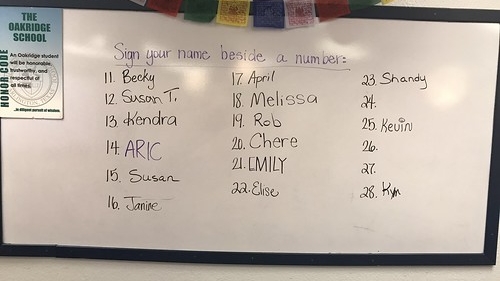 THE
OAKRIDGE
SCHOOL
HONOR CODE
An Oakridge student
will be honorable,
trustworthy, and
respectful at
all times.
...in diligent pursuit of wisdom
Sign your name beside a number:
11. Becky
12. Susan T.
13. Kendra
14. ARIC
15. Susan
16. Janine
17. April
18. Melissa
19. Rob
20. Chere
21. EMILY
22. Elise
23. Shandy
24.
25. Kevin
26.
27.
28. Kym